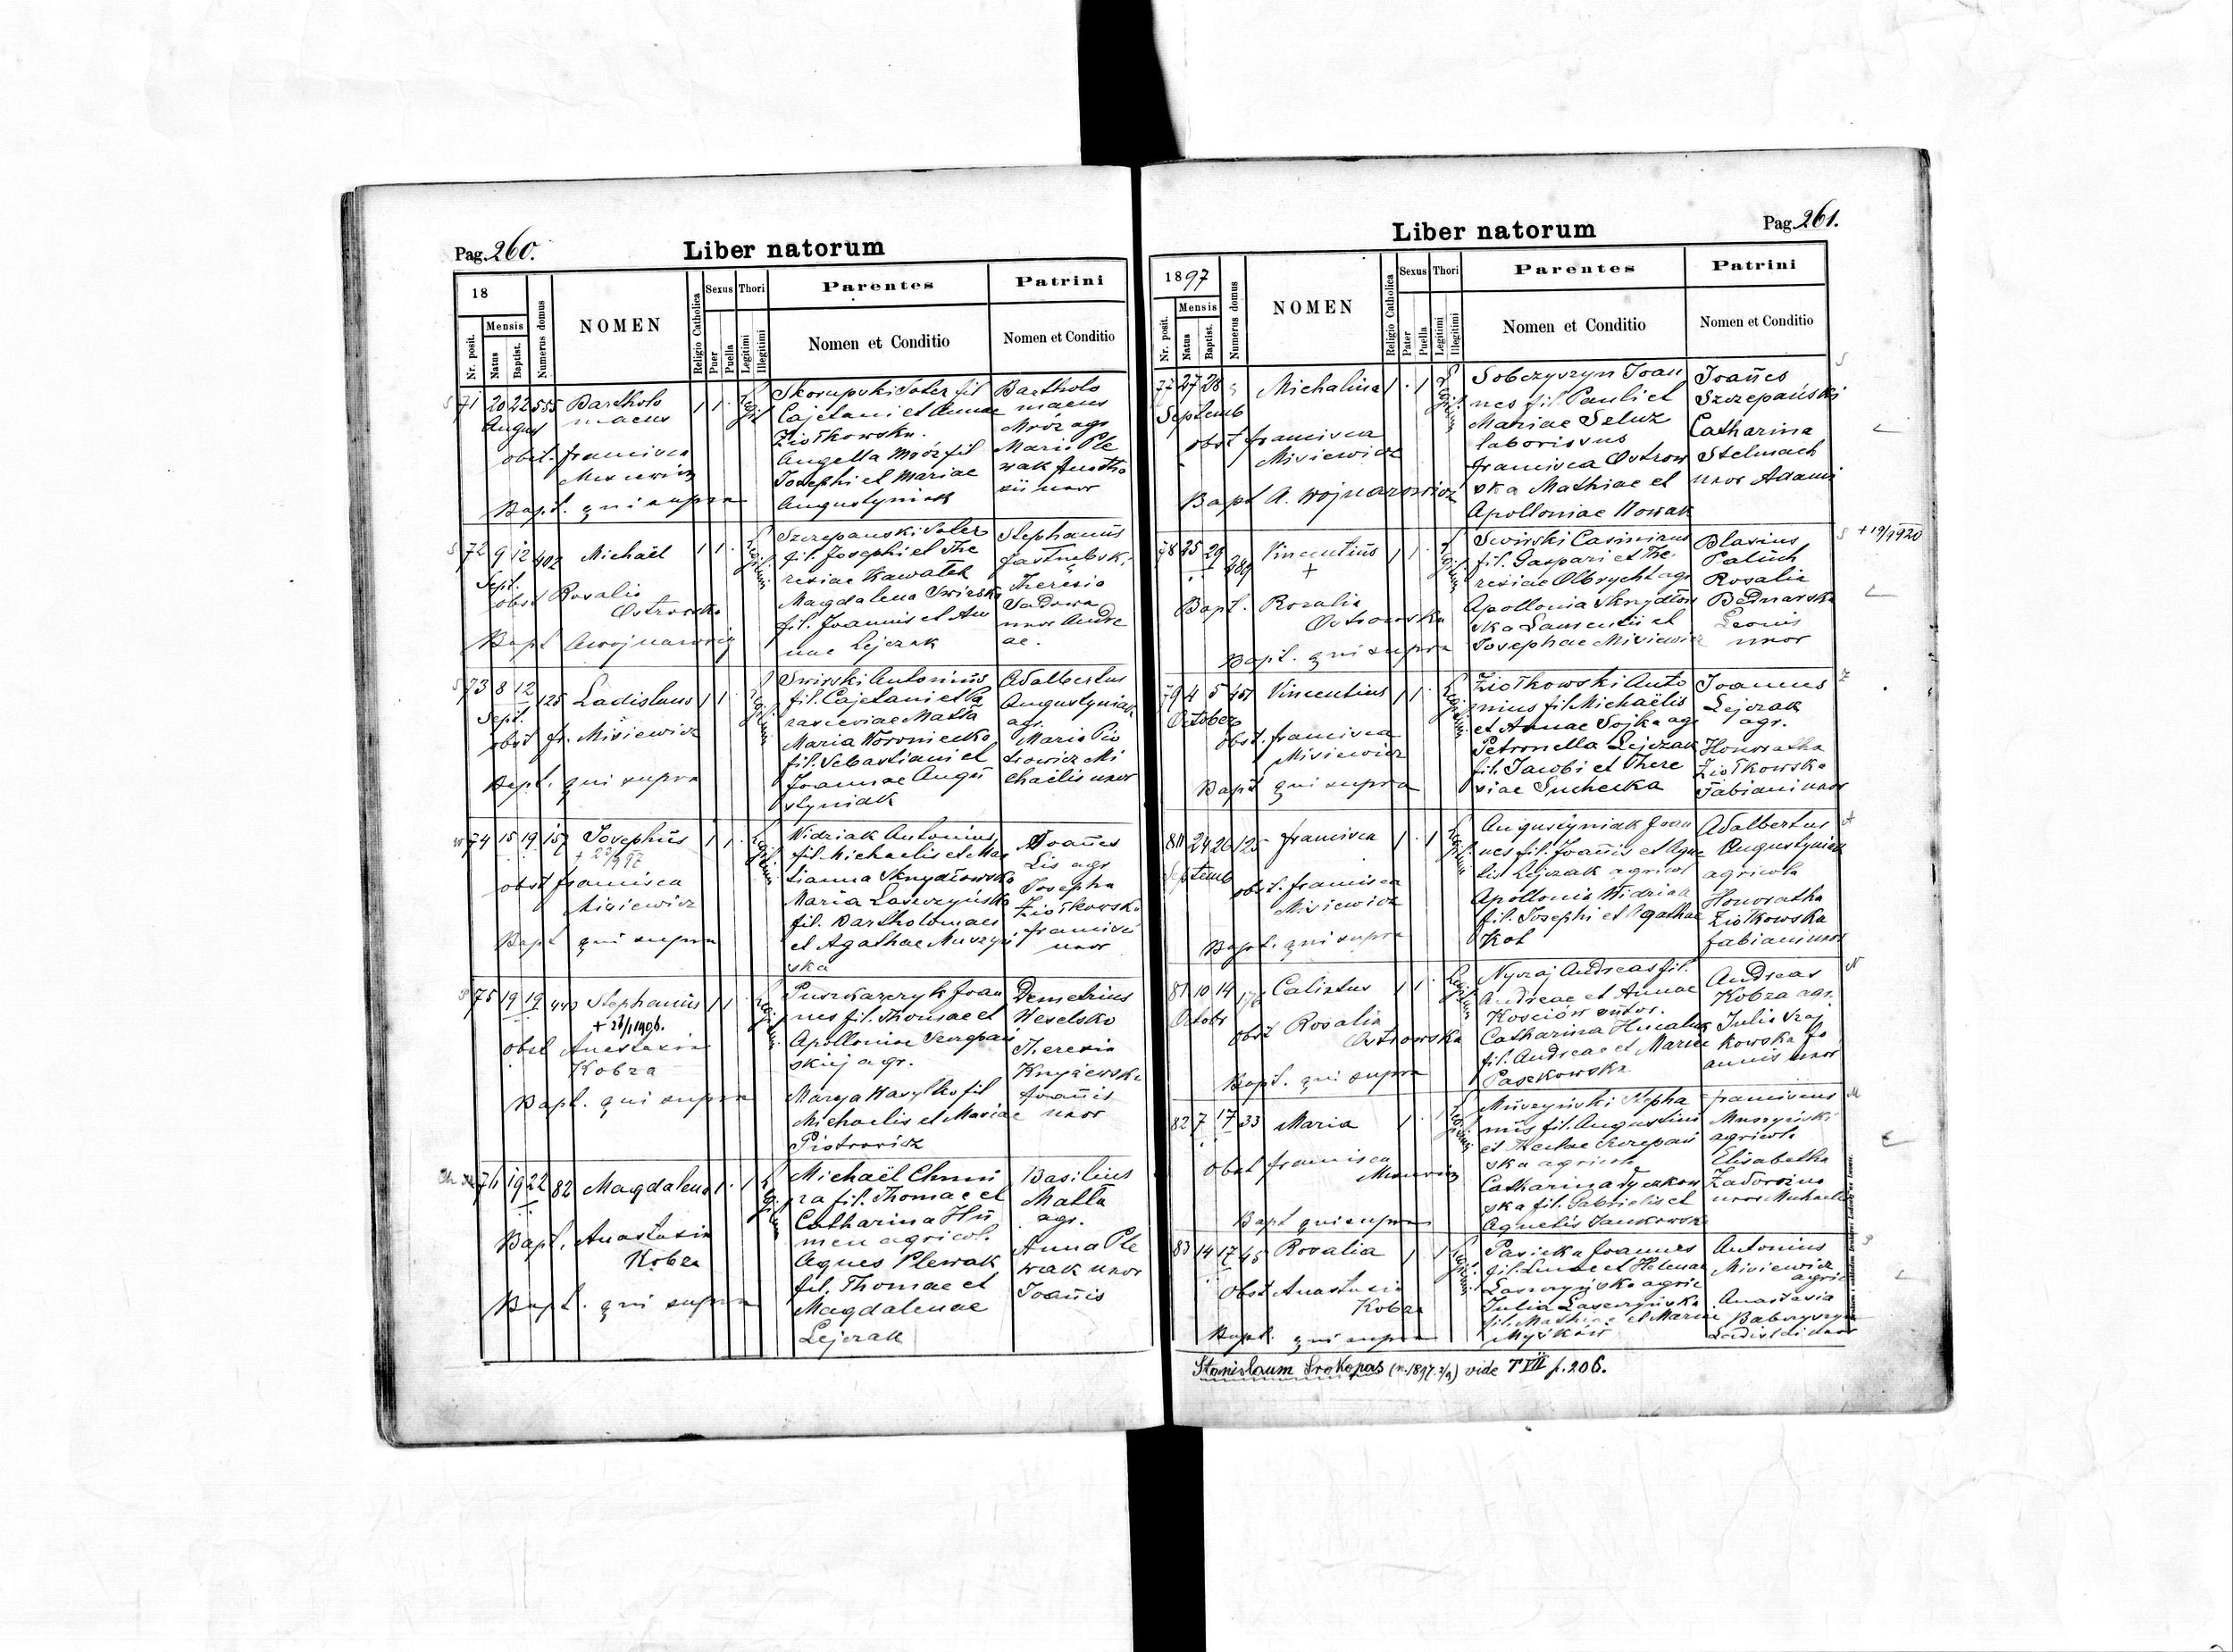 Pag. 260.
Liber natorum
18
Nr. posit.
Mensis
Natus
Baptist.
Numerus domus
NOMEN
Religio Catholica
Sexus
Puer
Puella
Thori
Legitimi
Illegitimi
Parentes
Nomen et Conditio
Patrini
Nomen et Conditio
S 71 20 22 555 Bartholo
maeus
August
obst. Francisca
Misiewicz
Bapt. qui supra
Skorupski Soter fil
Cajetani et Annae
Ziołkowska.
Angella Mróz fil
Josephi et Mariae
Augustyniak
Bartholo
maeus
Mróz agr
Maria Ple
wak
uxor
S 72 9 12 402 Michaël
Sept.
obst Rosalia
Ostrowska
Bapt A Wojnarowicz
Szczepanski Soter
fil. Josephi et The
resiae Kawałek
Magdalena Swirska
fil. Joannis et An
nae Lejczak
Stephanus
Jastrubski
Theresia
Sadowa
uxor Andre
ae.
S 73 8 12 125 Ladislaus
Sept.
obst fr. Misiewicz
Bapt. qui supra
Swirski Antonius
fil. Cajetani et Pa
rasceviae Matła
Maria Woroniecka
fil. Sebastiani et
Joannae Augu
styniak
Adalbertus
Augustyniak
agr.
Maria Pio
trowicz Mi
chaëlis uxor
W 74 15 19 157 Josephus
+ 22/9 97
obst Francisca
Misiewicz
Bapt qui supra
Widziak Antonius
fil. Michaelis et Mar
Skrzydłowska
Maria Laszczyńska
fil. Bartholomaei
et Agathae Muszyń
ska
Joañes
Lis agr
Josepha
Ziołkowska
Francisci
uxor
P 75 19 19 440 Stephanus
+ 28/1 1906.
obst Anastasia
Kobza
Bapt. qui supra
Puszkarczyk Joan
nes fil. Thomae et
Apolloniae Szczepań
skiej agr.
Marya Wasylko fil
Michaelis et Mariae
Piotrowicz
Demetrius
Wesełsko
Theresia
Knyżewska
Joañis
uxor
76 19 22 82 Magdalena
Bapt. Anastasia
Kobza
Bapt. qui supra
Michaël Chmu
ra fil. Thomae et
Catharina Hu
men agricol.
Agnes Plewak
fil. Thomae et
Magdalenae
Lejczak
Basilius
Matła
agr.
Anna Ple
wak uxor
Joañis
Pag. 261.
Liber natorum
1897
Nr. posit.
Mensis
Natus
Baptist.
Numerus domus
NOMEN
Religio Catholica
Sexus
Puer
Puella
Thori
Legitimi
Illegitimi
Parentes
Nomen et Conditio
Patrini
Nomen et Conditio
77 27 28 Michalina
Septemb
obst Francisca
Misiewicz
Bapt A. Wojnarowicz
Sobczyszyn Joan
nes fil. Pauli et
Mariae Seluz
laboriosus
Francisca Ostrow
ska Mathiae et
Apolloniae Nowak
Joañes
Szczepański
Catharina
Stelmach
uxor Adami
S
78 25 29 289 Vincentius
+
Bapt. Rozalia
Ostrowska
Bapt. qui supra
Swirski Casimirus
fil. Gaspari et The
resiae Olbrycht agr
Apollonia Skrzydłow
ska Laurentii et
Josephae Misiewicz
Blasius
Paluch
Rosalia
Bednarska
Leonis
uxor
S + 19/9 1920
79 4 5 Vincentius
October
obst. Francisca
Misiewicz
Bapt qui supra
Ziołkowski Anto
nius fil Michaëlis
et Annae Sojka agr
Petronella Lejczak
fil. Jacobi et There
siae Suchecka
Joannes
Lejczak
agr.
Honoratha
Ziołkowska
Fabiani uxor
Z
80 24 26 125 Francisca
Septemb
obst. Francisca
Misiewicz
Bapt. qui supra
Augustyniak Joan
nes fil. Joañis et Agne
tis Lejczak agricol
Apollonia Widziak
fil. Josephi et Agathae
Kot
Adalbertus
Augustyniak
agricola
Honoratha
Ziołkowska
Fabiani uxor
A
81 10 14 176 Calixtus
Octobr
obst Rosalia
Ostrowska
Bapt. qui supra
Nycraj Andreas fil.
Andreae et Annae
Kościów sutor.
Catharina Hucaluk
fil. Andreae et Mariae
Pasekowska
Andreas
Kobza agr.
Julia Szaj
kowska Jo
annis uxor
N
82 7 17 33 Maria
Obst Francisca
Misiewicz
Bapt qui supra
Muszyński Stepha
nus fil. Augustini
et Teclae Szczepań
ska agricola
Catharina Tyczkow
ska fil. Gabrielis et
Agnetis Jankowska
Franciscus
Muszyński
agricola
Elisabetha
Zadorożna
uxor Michaelis
M
83 14 17 45 Rosalia
Obst Anastasia
Kobza
Bapt. qui supra
Pasieka Joannes
fil. Lucae et Helenae
Laszczyńska agric
Julia Laszczyńska
fil. Mathiae et Mariae
Myśków
Antonius
Misiewicz
agric
Anastasia
Baboryszyn
Ladislai uxor
P
Stanislaum Prokopas (n. 1897 2/9) vide T VII p. 206.